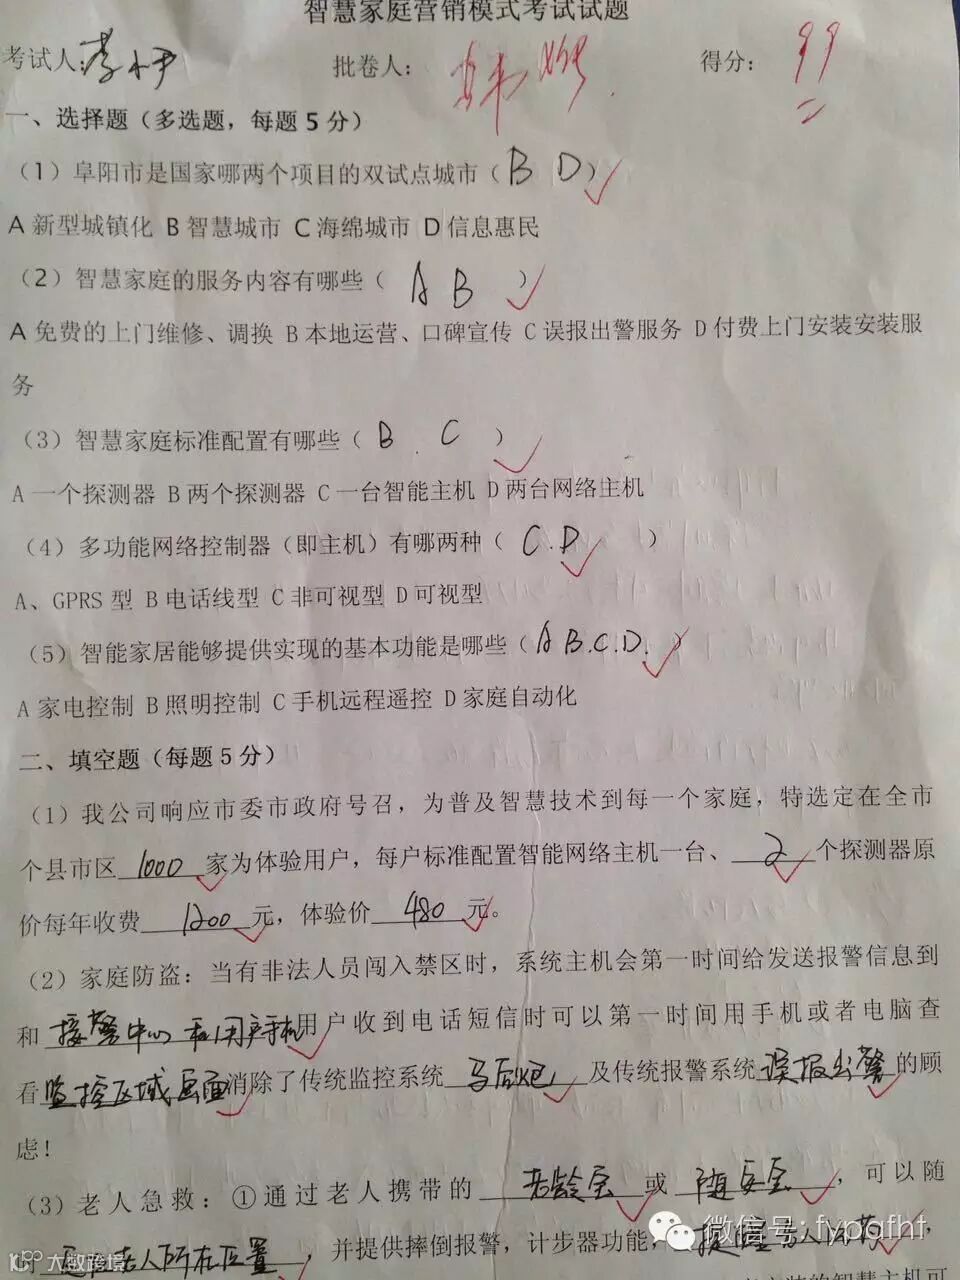 智慧家庭营销模式考试试题
考试人: 批卷人: 得分: 99
一、选择题（多选题，每题5分）
（1）阜阳市是国家哪两个项目的双试点城市（B D）
A 新型城镇化 B 智慧城市 C 海绵城市 D 信息惠民
（2）智慧家庭的服务内容有哪些（ A B ）
A 免费的上门维修、调换 B 本地运营、口碑宣传 C 误报出警服务 D 付费上门安装安装服
务
（3）智慧家庭标准配置有哪些（ B C ）
A 一个探测器 B 两个探测器 C 一台智能主机 D 两台网络主机
（4）多功能网络控制器（即主机）有哪两种（ C.D ）
A、GPRS 型 B 电话线型 C 非可视型 D 可视型
（5）智能家居能够提供实现的基本功能是哪些（A B.C.D.）
A 家电控制 B 照明控制 C 手机远程遥控 D 家庭自动化
二、填空题（每题5分）
（1）我公司响应市委市政府号召，为普及智慧技术到每一个家庭，特选定在全市
个县市区 1000 家为体验用户，每户标准配置智能网络主机一台、 2 个探测器原
价每年收费 1200 元，体验价 480 元。
（2）家庭防盗：当有非法人员闯入禁区时，系统主机会第一时间给发送报警信息到
和 接警中心和用户手机 用户收到电话短信时可以第一时间用手机或者电脑查
看 监控区域画面 消除了传统监控系统 马后炮 及传统报警系统 误报出警 的顾
虑！
（3）老人急救：①通过老人携带的 老龄宝 或 随安宝 ，可以随
时 老人所在位置 ，并提供摔倒报警，计步器功能， 提醒老人 ，
微信号: fypqfht
大数跨境